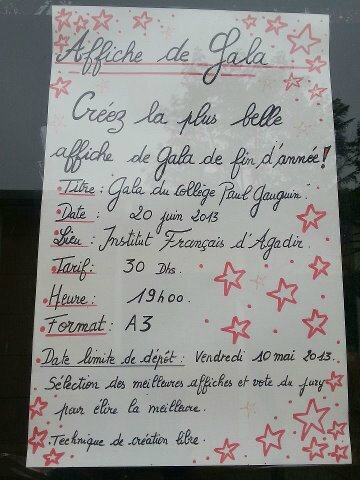 Affiche de Gala
Créez la plus belle
affiche de Gala de fin d'année!
Titre: Gala du collège Paul Gauguin.
Date: 20 juin 2013
Lieu: Institut Français d'Agadir.
Tarif: 30 Dhs.
Heure: 19h00.
Format: A3
Date limite de dépôt: Vendredi 10 mai 2013.
Sélection des meilleures affiches et vote du jury
pour élire la meilleure.
Technique de création libre.